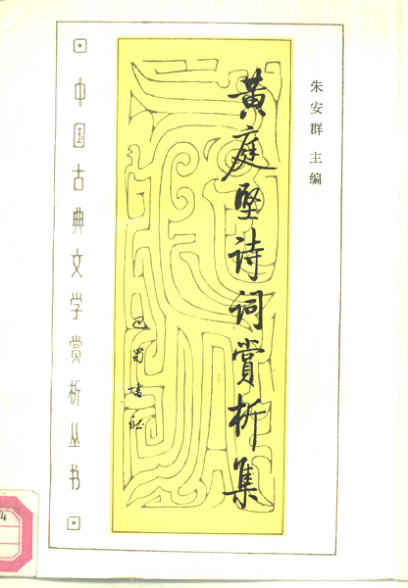 朱安群 主编
黄庭坚诗词赏析集
巴蜀书社
中国古典文学赏析丛书
4